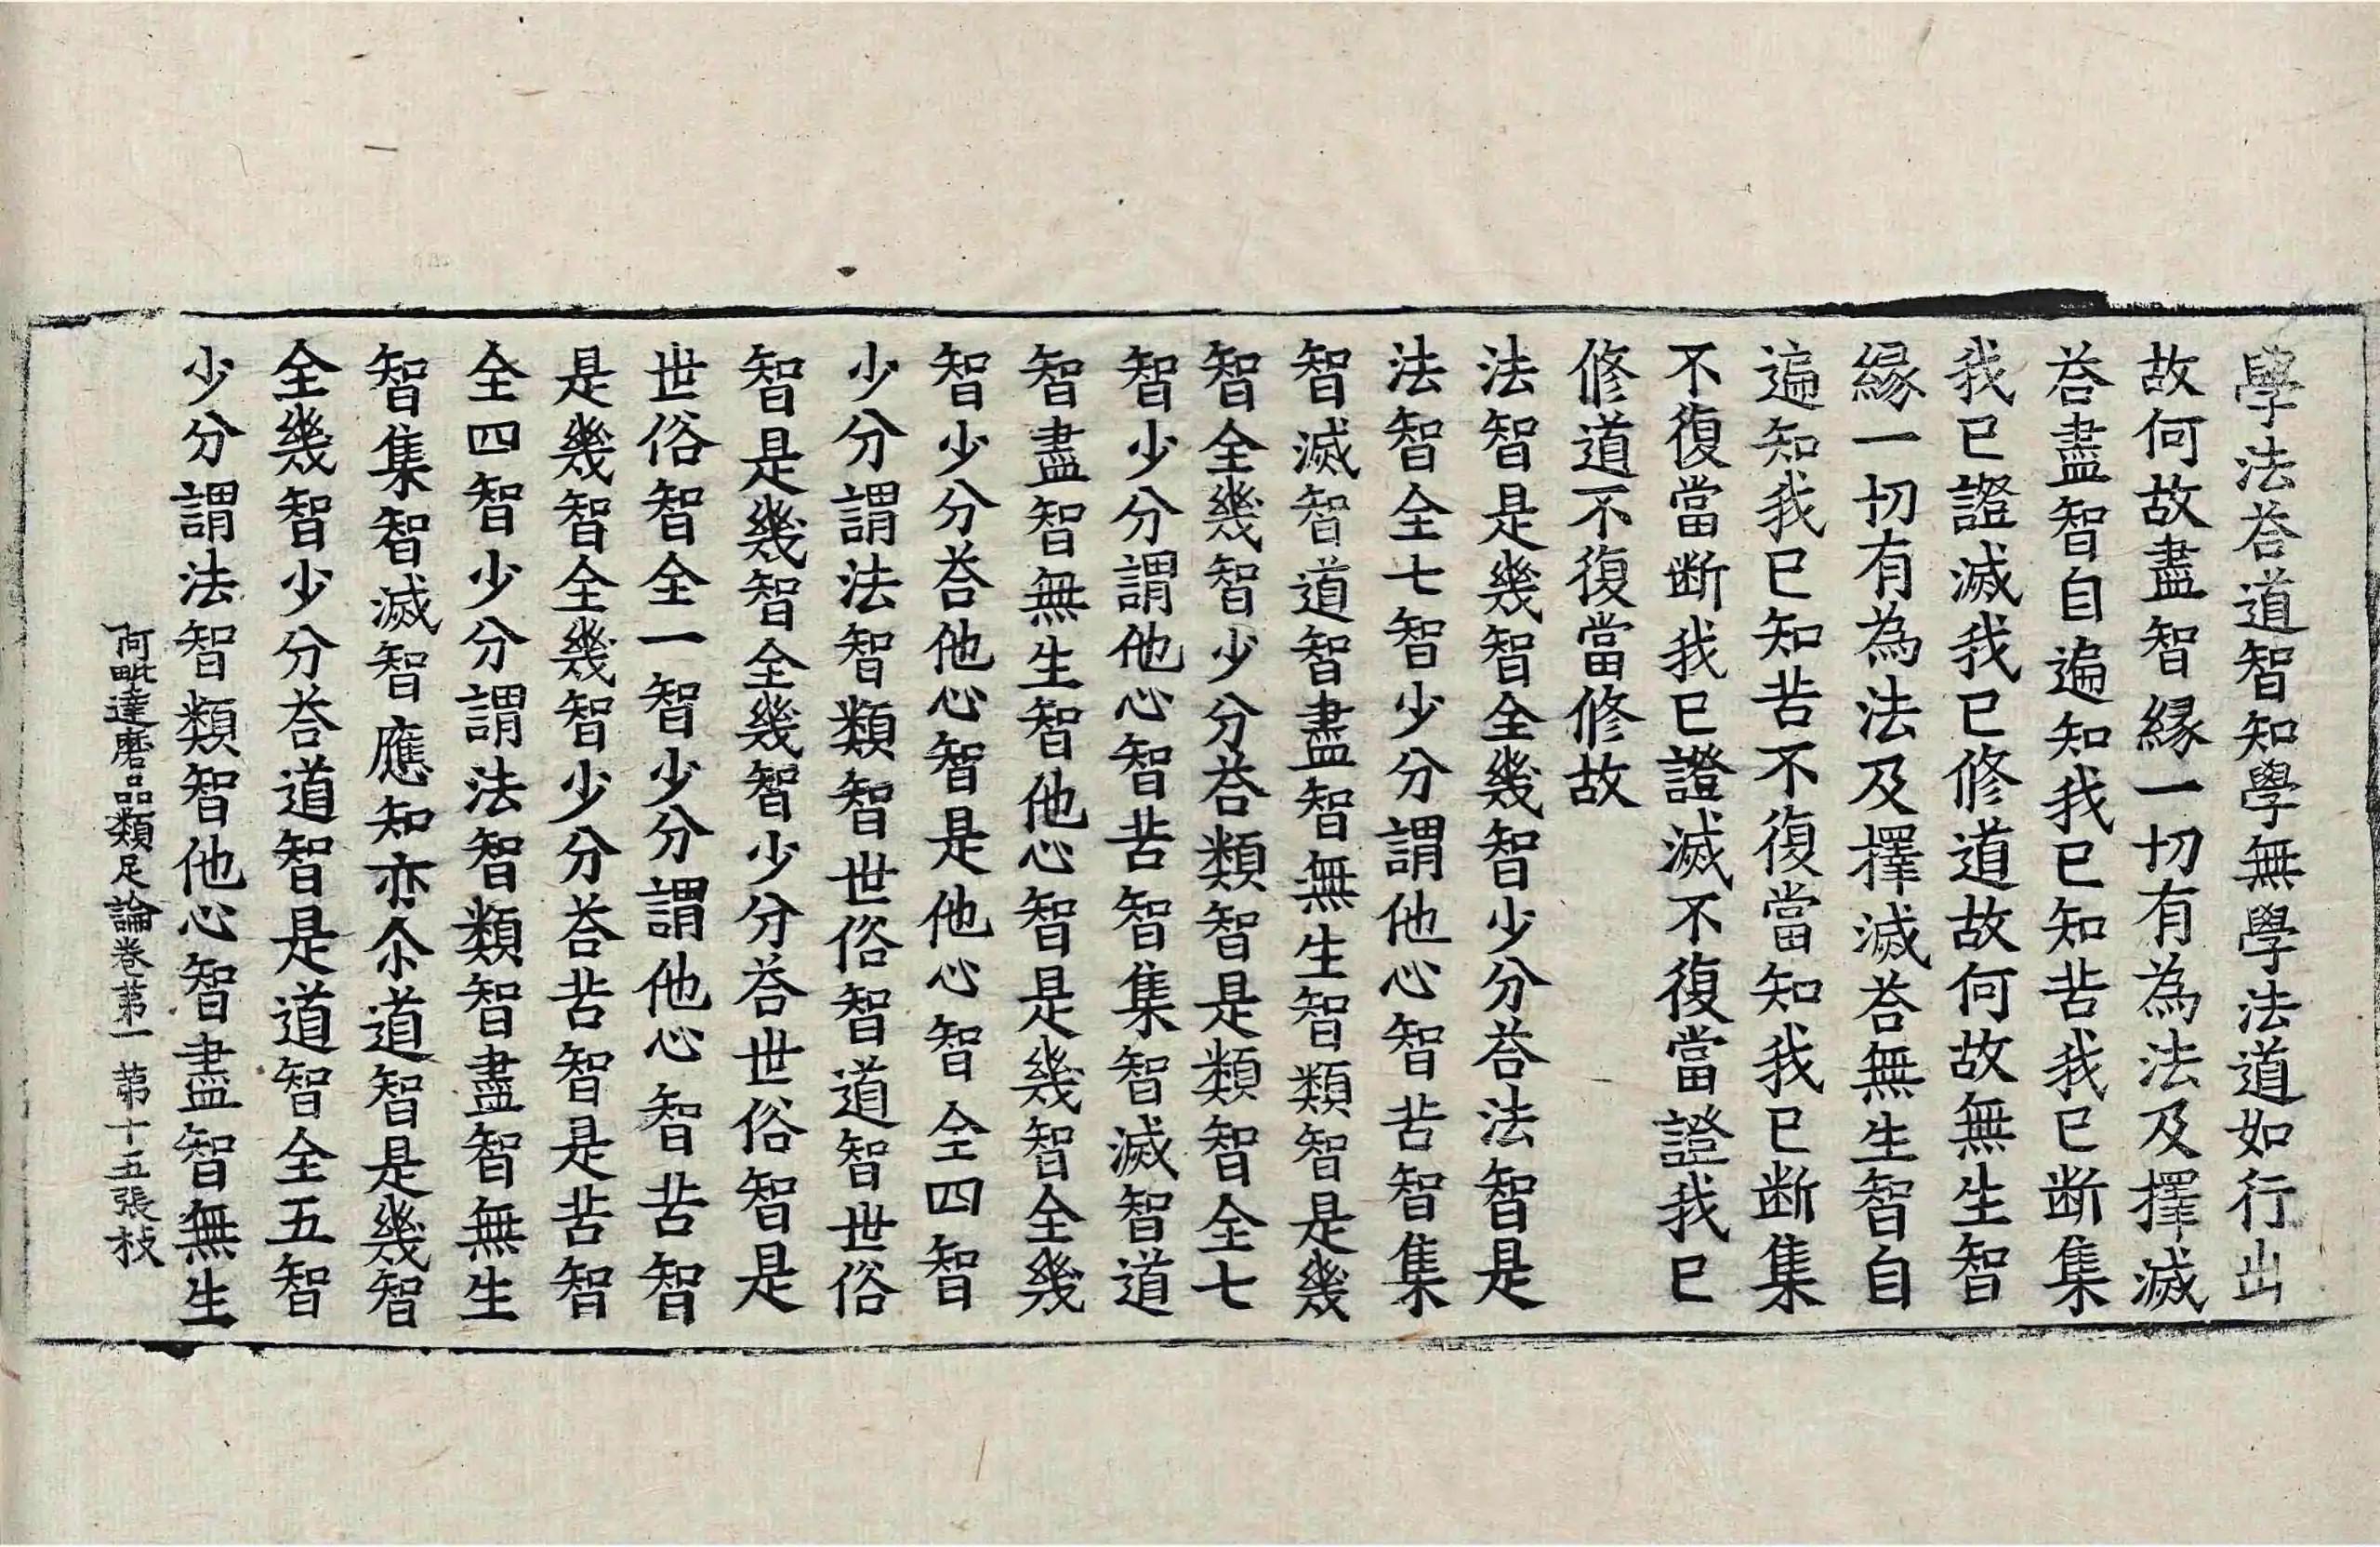 學法荅道智知學無學法道如行出
故何故盡智縁一切有為法及擇滅
荅盡智自遍知我已知苦我已断集
我已證滅我已修道故何故無生智
縁一切有為法及擇滅荅無生智自
遍知我已知苦不復當知我已断集
不復當断我已證滅不復當證我已
修道不復當修故
法智是幾智全幾智少分荅法智是
法智全七智少分謂他心智苦智集
智滅智道智盡智無生智類智是幾
智全幾智少分荅類智是類智全七
智少分謂他心智苦智集智滅智道
智盡智無生智他心智是幾智全幾
智少分荅他心智是他心智全四智
少分謂法智類智世俗智道智世俗
智是幾智全幾智少分荅世俗智是
世俗智全一智少分謂他心智苦智
是幾智全幾智少分荅苦智是苦智
全四智少分謂法智類智盡智無生
智集智滅智應知亦尒道智是幾智
全幾智少分荅道智是道智全五智
少分謂法智類智他心智盡智無生
阿毗達磨品類足論卷苐一 苐十五張枝